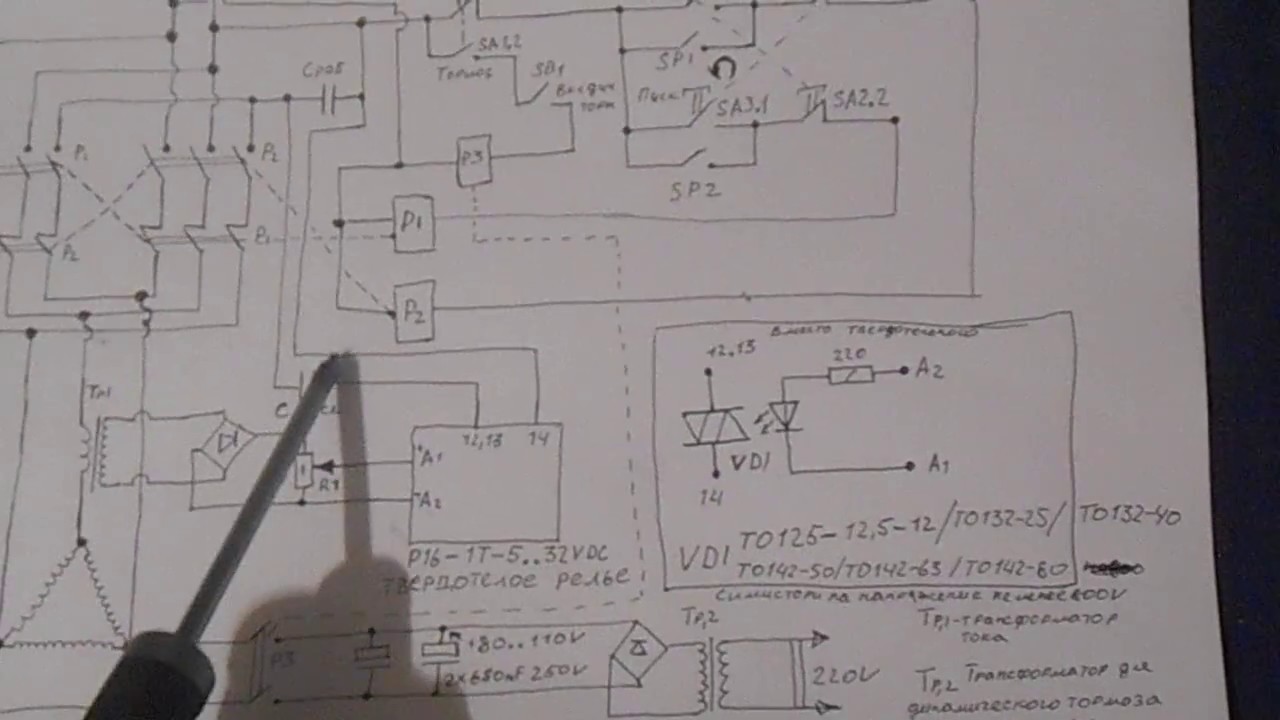 Cраб
SA1.2
Тормоз
SB1
SP1
Пуск
SA3.1
SA2.2
SP2
P1
P2
P3
P1
P2
P1
P2
Вместо твердотельного
12.13
220
A2
VD1
A1
14
VD1 TO125-12,5-12/TO132-25/TO132-40
TO142-50/TO142-63/TO142-80
Симисторы на напряжение не менее 800V
Тр1
R1
+A1
-A2
12,13
14
P16-1T-5..32VDC
ТВЕРДОТЕЛОЕ РЕЛЬЕ
P3
+80..110V
2x680mF 250V
Тр,2
220V
Тр,1-трансформатор
тока
Тр,2 Трансформатор для
динамического тормоза